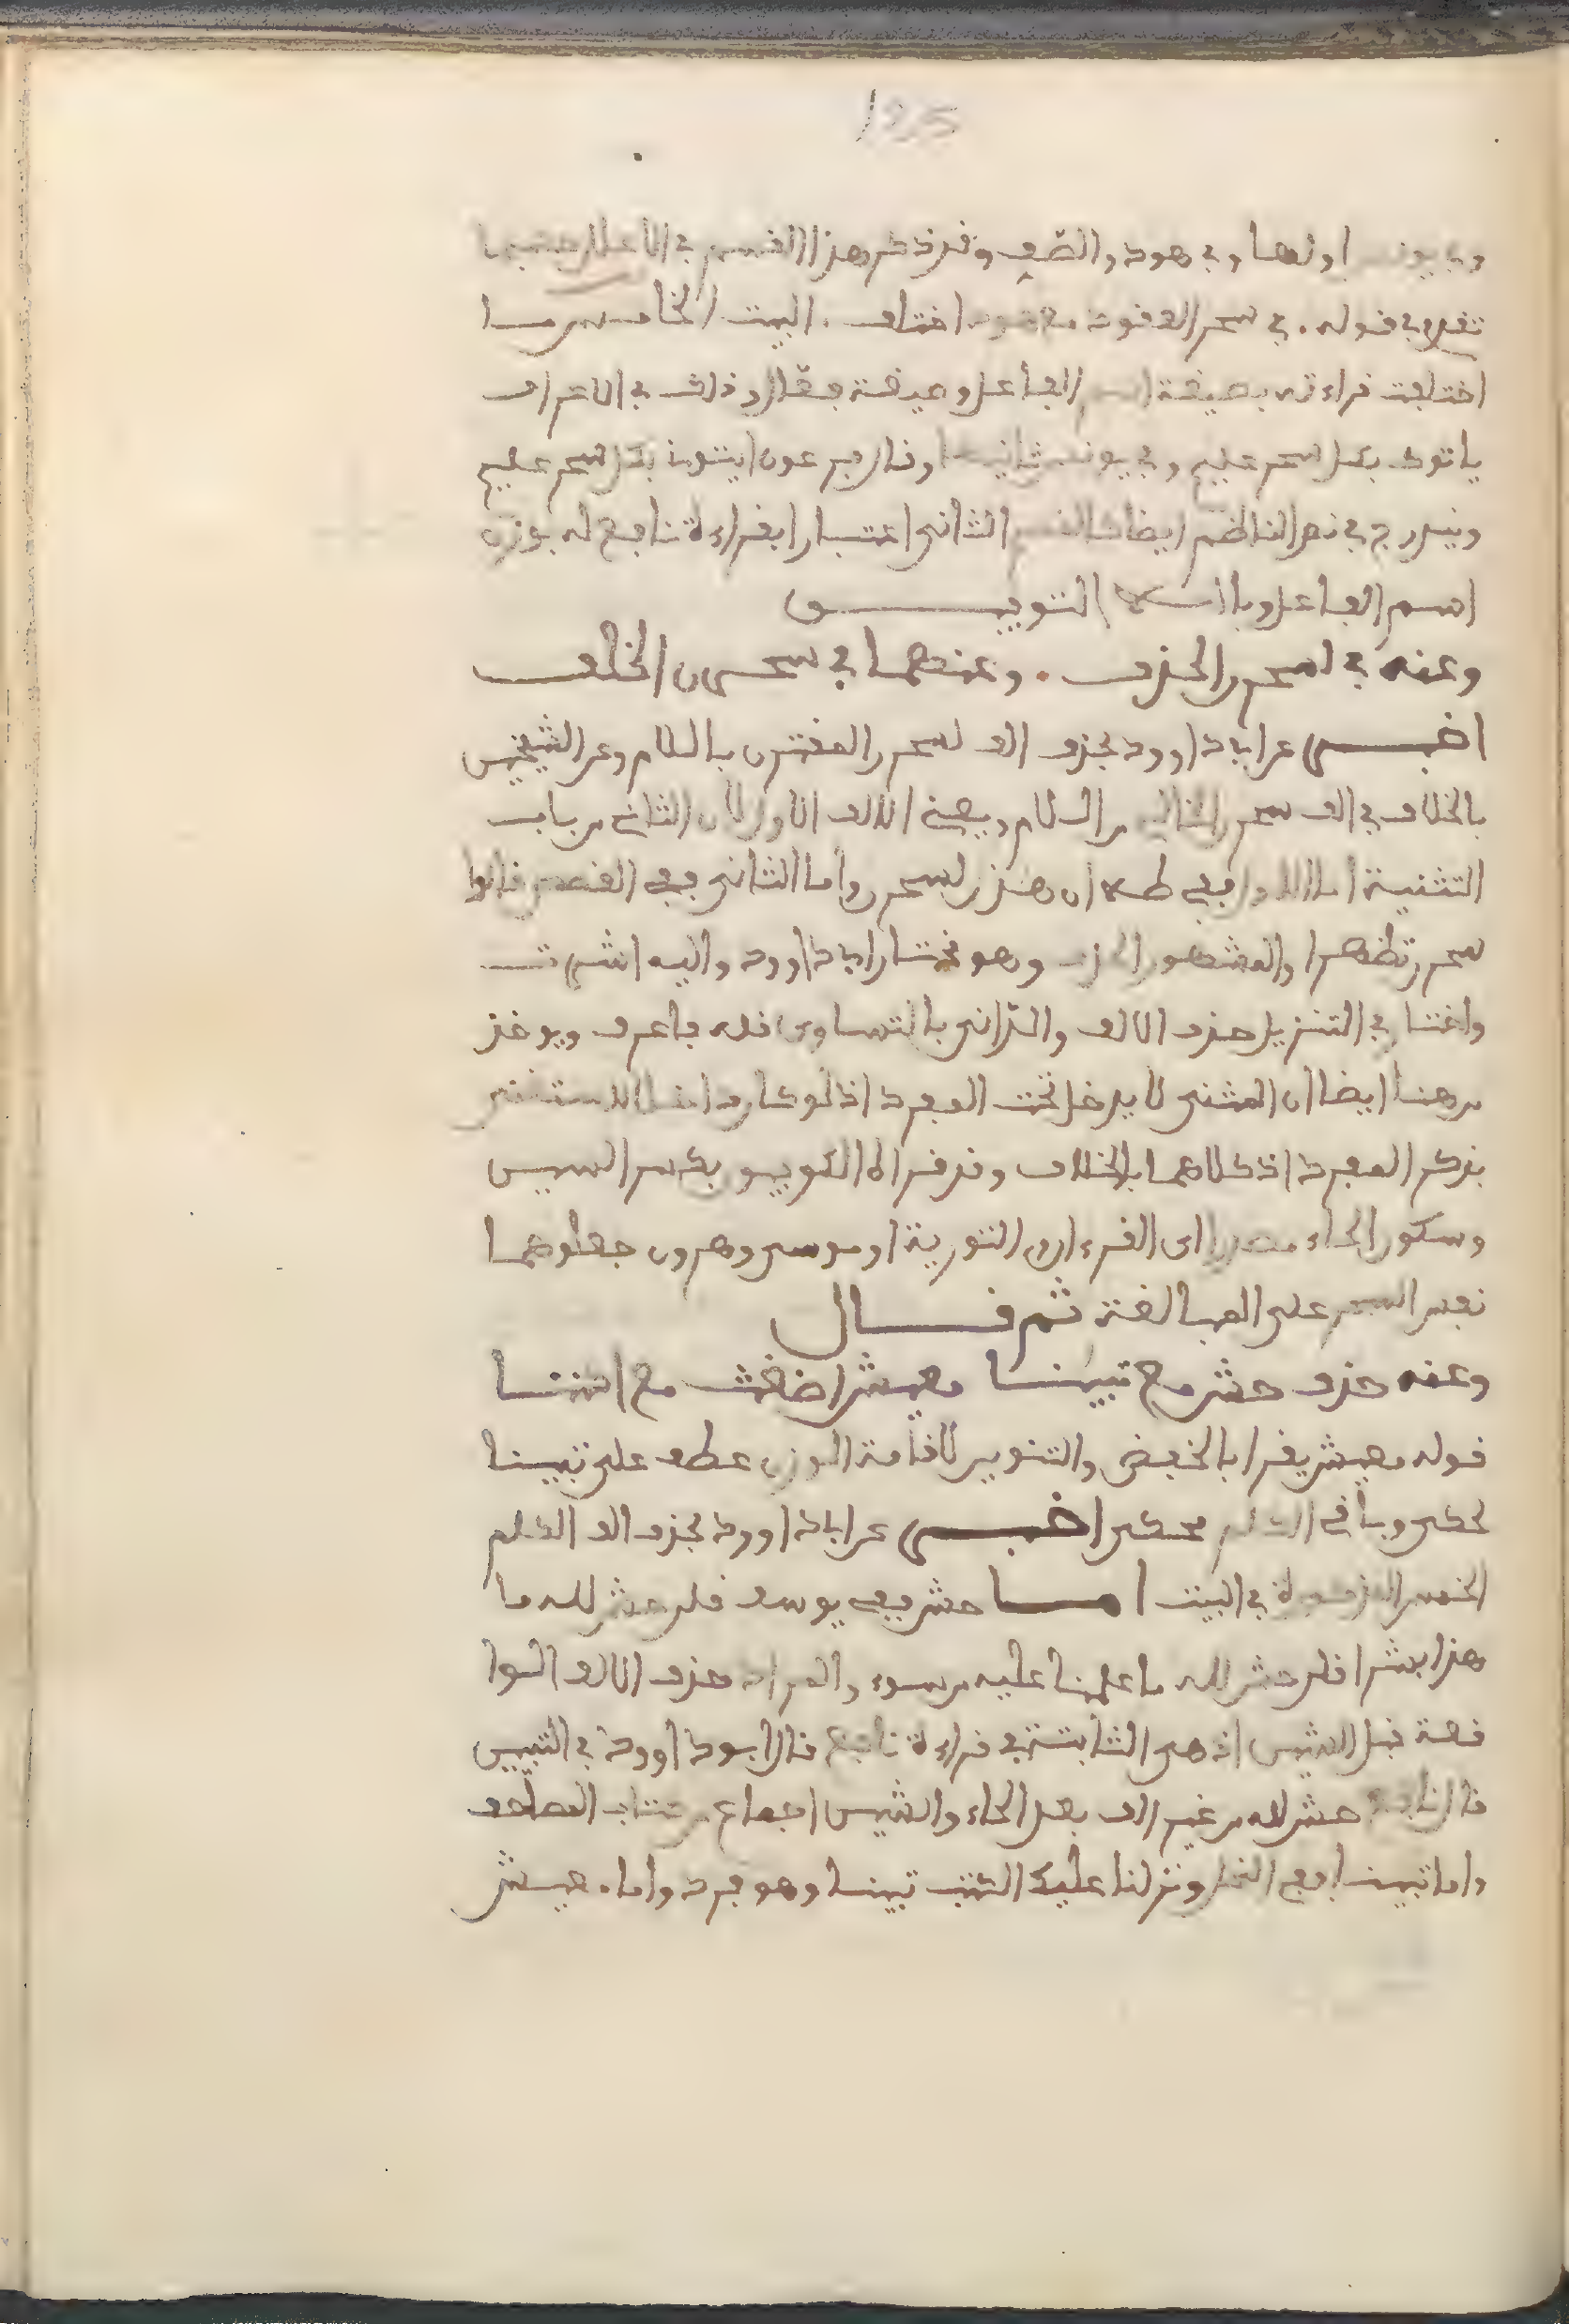 125
وفي يونس اولها وفي هود والصف وقد ذكر هذا القسم في
تقدم في قوله . في سحر العقود مع اختلف . البيت الخامس ما
اختلفت قراءته بصيغة اسم الفاعل وصيغة فعال وذلك في الاعراف
ياتوك بكل سحر عليم وفي يونس ثانيها وقال فرعون ايتوني بكل سحر عليم
ويندرج في نص الناظم ايضا كالقسم الثاني اعتبارا بقراءة نافع له بوزن
اسم الفاعل وبالله التوفيق
وعنه في لسحر الحذف . وعنهما في سحرن الخلف
اخبر عن ابي داوود بحذف الف لسحرن المقترن باللام وعن الشيخين
بالخلاف في الف سحرن الخالي من اللام ويعني الالف الاول لان الثاني من باب
التثنية اما الاول ففي طه ان هذن لسحرن واما الثاني ففي القصص قالوا
سحرن تظهرا والمشهور الحذف وهو مختار ابي داوود واليه اشرت
واختار في التنزيل حذف الالف والداني بالتساوي قله فاعرف ويوخذ
من هنا ايضا ان المثنى لا يدخل تحت المفرد اذ لو كان داخلا لاستغنى
بذكر المفرد اذ كلاهما بالخلاف وقد قراه الكوفيون بكسر السين
وسكون الحاء من اى القرءان والتورية او موسى وهرون جعلوهما
نفس السحر على المبالغة ثم قال
وعنه حذف حش مع تبينا معيش اضغث مع اكننا
قوله معيش يقرا بالخفض والتنوين لاقامة الوزن عطف على تبينا
محكى وباقي الكلم محكى اخبر عن ابي داوود بحذف الف الكلم
الخمس المذكورة في البيت اما حش ففي يوسف قلن حش لله ما
هذا بشرا قلن حش لله ما علمنا عليه من سوء والمراد حذف الالف الوا
قعة قبل الشين اذ هي الثابتة في قراءة نافع قال ابو داوود في التبيين
قال نافع حش لله من غير الف بعد الحاء والشين اجماع من كتاب المصاحف
واما تبينا ففي النحل ونزلنا عليك الكتب تبينا وهو فرد واما معيش